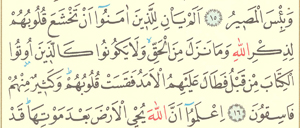 وَبِئْسَ الْمَصِيرُ ١٥ اَلَمْ يَأْنِ لِلَّذِينَ اٰمَنُٓوا اَنْ تَخْشَعَ قُلُوبُهُمْ
لِذِكْرِ اللّٰهِ وَمَا نَزَلَ مِنَ الْحَقِّ وَلَا يَكُونُوا كَالَّذِينَ اُوتُوا
الْكِتَابَ مِنْ قَبْلُ فَطَالَ عَلَيْهِمُ الْاَمَدُ فَقَسَتْ قُلُوبُهُمْ وَكَثِيرٌ مِنْهُمْ
فَاسِقُونَ ١٦ اِعْلَمُٓوا اَنَّ اللّٰهَ يُحْيِ الْاَرْضَ بَعْدَ مَوْتِهَا قَدْ